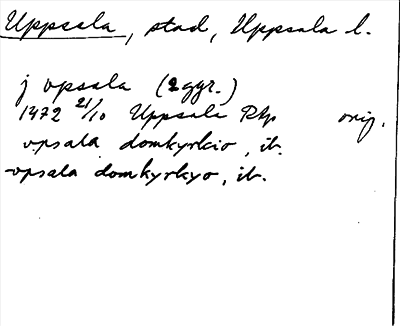 Uppsala, stad, Uppsala l.
j vpsala (2 ggr.)
1472 21/10 Uppsala Rkp orig.
vpsala domkyrkio, ib.
vpsala domkyrkyo, ib.